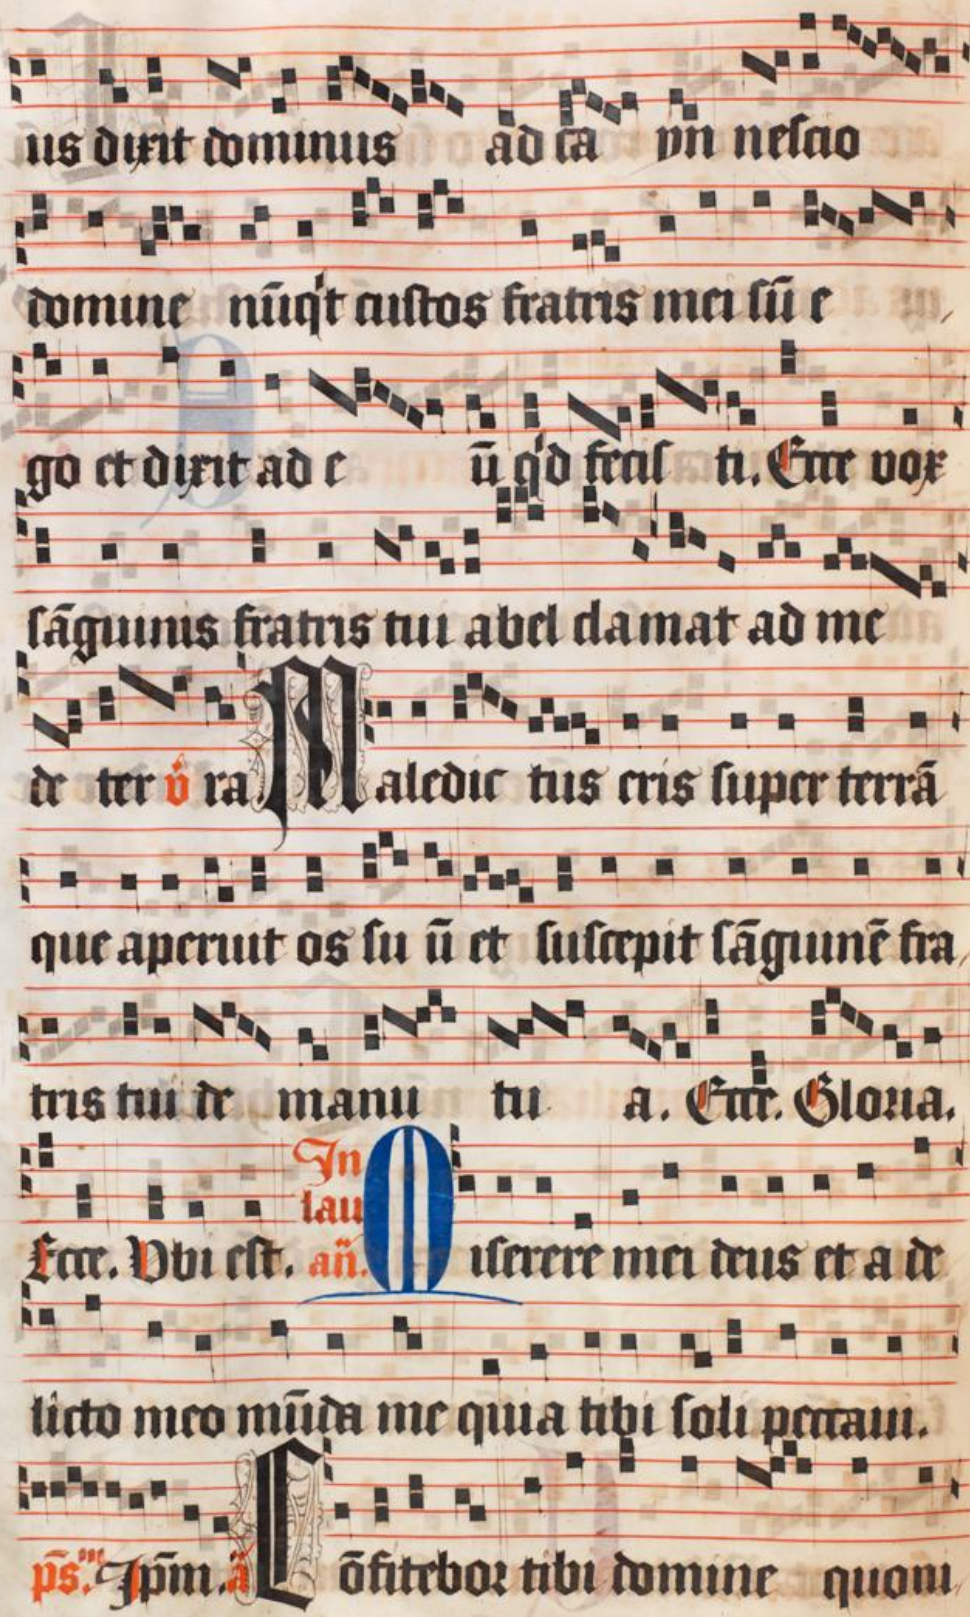 us dixit dominus ad ca yn nescio
domine nūqͥt custos fratris mei sū e
go et dixit ad e ū qͥd fecis ti. Ecce vox
sāguinis fratris tui abel clamat ad me
de ter v̊ ra Maledic tus eris super terrā
que aperuit os su ū et suscepit sāguinē fra
tris tui de manu tu a. Ecce. Gloria.
Ecce. Vbi est. In lau añ. Miserere mei deus et a de
licto meo mūda me quia tibi soli peccaui.
ps. Ipm. a Cōfitebor tibi domine quoni